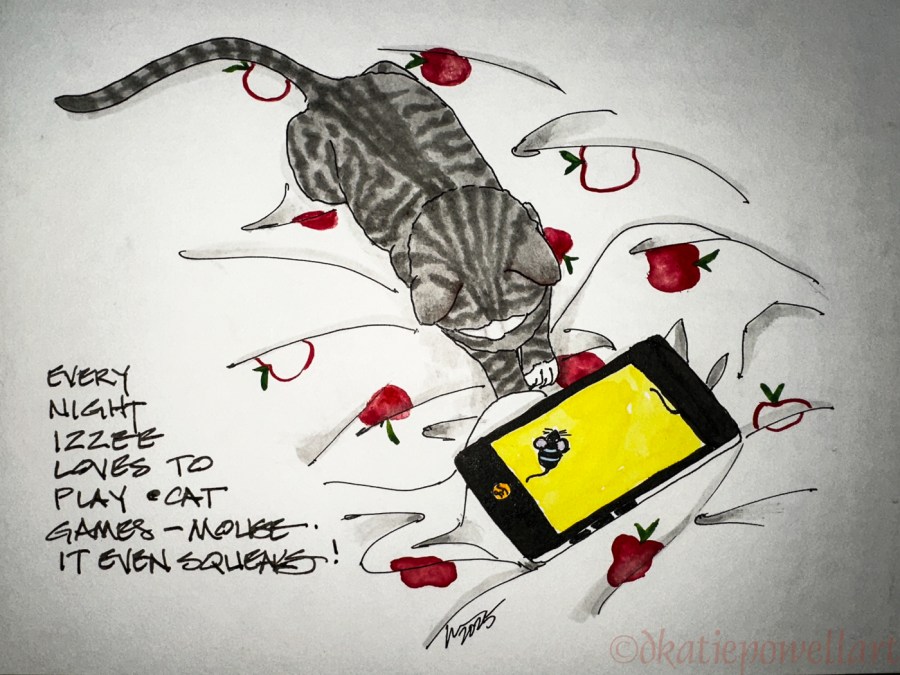 EVERY
NIGHT
IZZEE
LOVES TO
PLAY @CAT
GAMES - MOUSE.
IT EVEN SQUEAKS!
2025
©dkatiepowellart